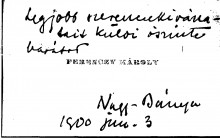 Legjobb szerencsekivána-
tait küldi őszinte
barátod
FERENCZY KÁROLY
Nagy-Bánya
1900 jún. 3